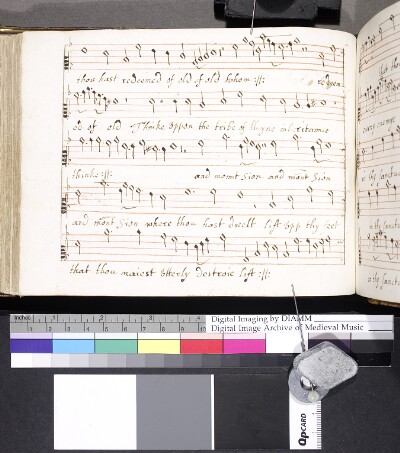 thou hast redeemed of old of old whom :||: redeem
ed of old Thinke uppon the tribe of thyne inheritance
thinke :||: and mount Sion and mount Sion
and mount Sion where thou hast dwelt lift upp thy feet
that thou maiest utterly destroie lift :||:
inches 1 2 3 4 5 6
Digital Imaging by DIAMM
Digital Image Archive of Medieval Music
QPCARD